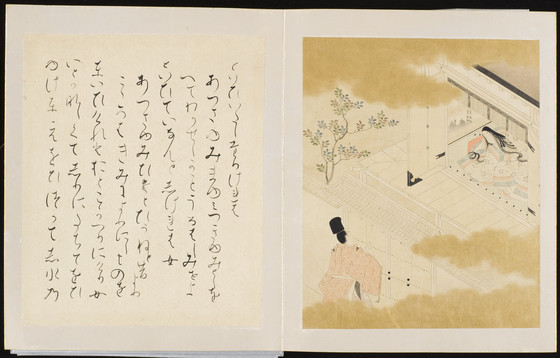 といひいたしたりけれは
あつさゆみまゆみつきゆみとしを
へてわかせしかことうるはしみせよ
といひていなんとしけれは女
あつさゆみひけとひかねと昔より
こゝろはきみによりにしものを
といひけれとおとこかへりにけり女
いとかなしくてしりにたちてをひ
ゆけとえをひつかてし水乃